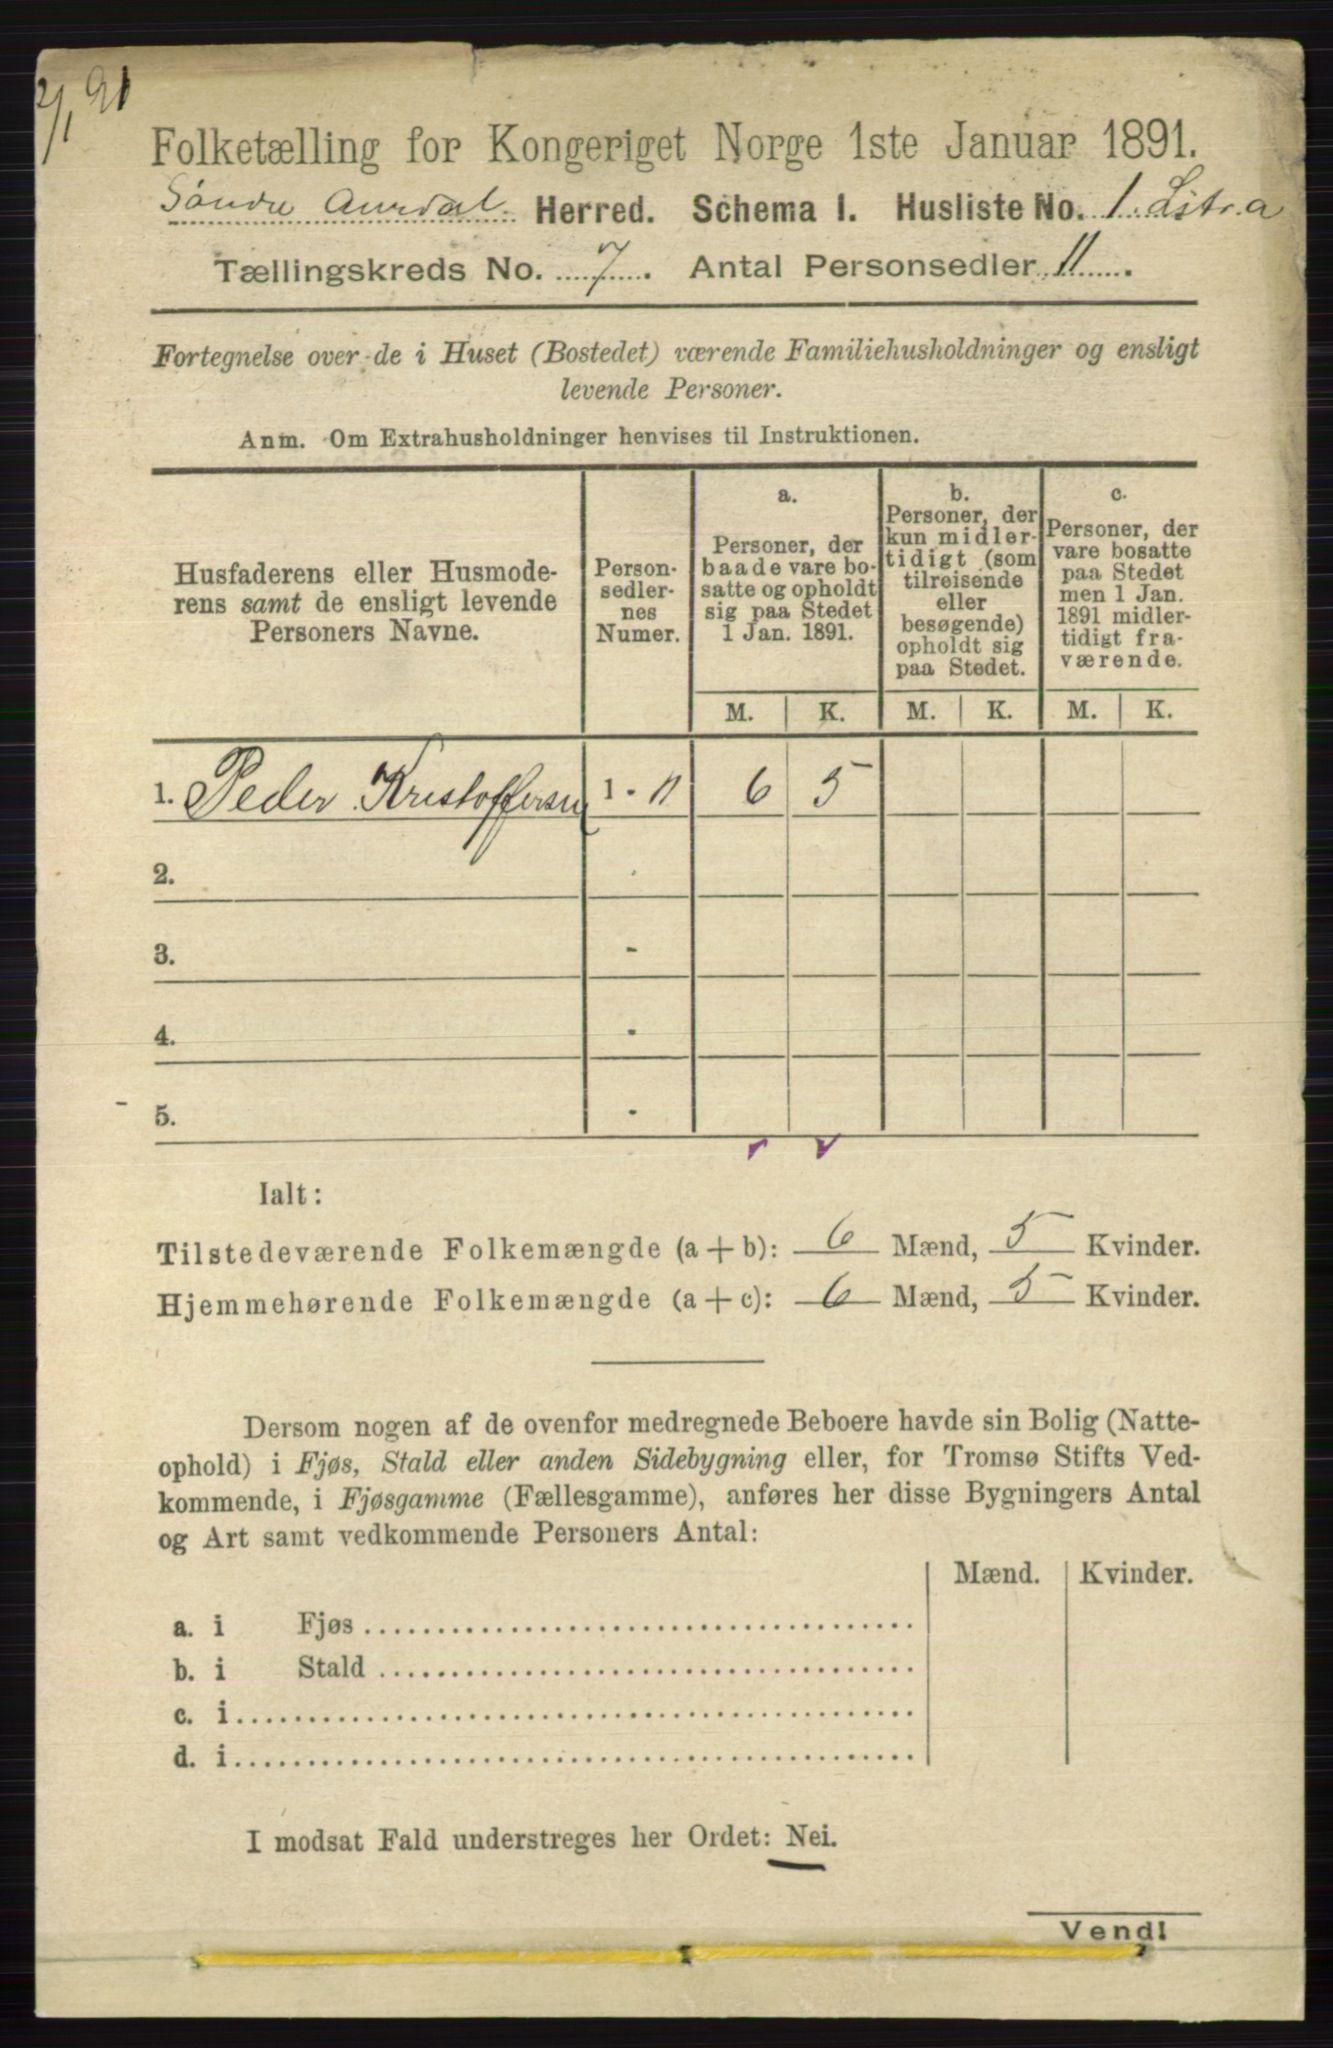 2/1 91
Folketælling for Kongeriget Norge 1ste Januar 1891.
Søndre Aurdal Herred. Schema 1. Husliste No. 1 Litr. a
Tællingskreds No. 7. Antal Personsedler 11.
Fortegnelse over de i Huset (Bostedet) værende Familiehusholdninger og ensligt
levende Personer.
Anm. Om Extrahusholdninger henvises til Instruktionen.
Husfaderens eller Husmode-
rens samt de ensligt levende
Personers Navne.
Person-
sedler-
nes
Numer.
a.
Personer, der
baade vare bo-
satte og opholdt
sig paa Stedet
1 Jan. 1891.
b.
Personer, der
kun midler-
tidigt (som
tilreisende
eller
besøgende)
opholdt sig
paa Stedet.
c.
Personer, der
vare bosatte
paa Stedet
men 1 Jan.
1891 midler-
tidigt fra-
værende.
M. K. M. K. M. K.
1. Peder Kristoffersen 1 - 11 6 5
2.
3. -
4. -
5. -
Ialt:
Tilstedeværende Folkemængde (a + b): 6 Mænd, 5 Kvinder.
Hjemmehørende Folkemængde (a + c): 6 Mænd, 5 Kvinder.
Dersom nogen af de ovenfor medregnede Beboere havde sin Bolig (Natte-
ophold) i Fjøs, Stald eller anden Sidebygning eller, for Tromsø Stifts Ved-
kommende, i Fjøsgamme (Fællesgamme), anføres her disse Bygningers Antal
og Art samt vedkommende Personers Antal:
Mænd. Kvinder.
a. i Fjøs
b. i Stald
c. i
d. i
I modsat Fald understreges her Ordet: Nei.
Vend!